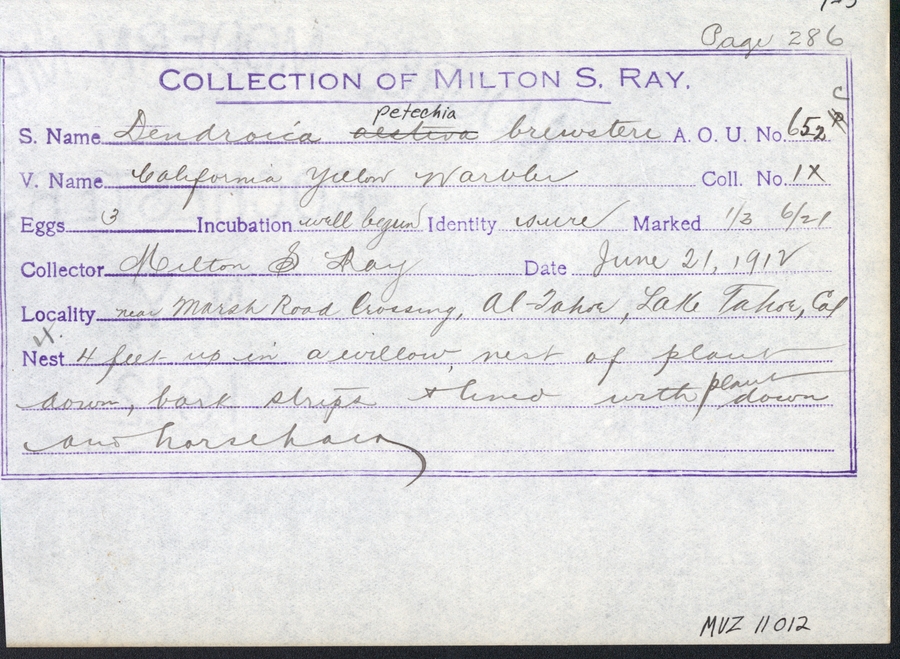 Page 286
COLLECTION OF MILTON S. RAY.
petechia
S. Name Dendroica aestiva brewsteri A. O. U. No. 652 c
V. Name California Yellow Warbler Coll. No. 1X
Eggs 3 Incubation well begun Identity sure Marked 1/3 6/21
Collector Milton S Ray Date June 21, 1912
Locality near Marsh Road Crossing, Al-Tahoe, Lake Tahoe, Cal
Nest 4 feet up in a willow, nest of plant
down, bark strips + lined with plant down
and horsehair
MVZ 11012